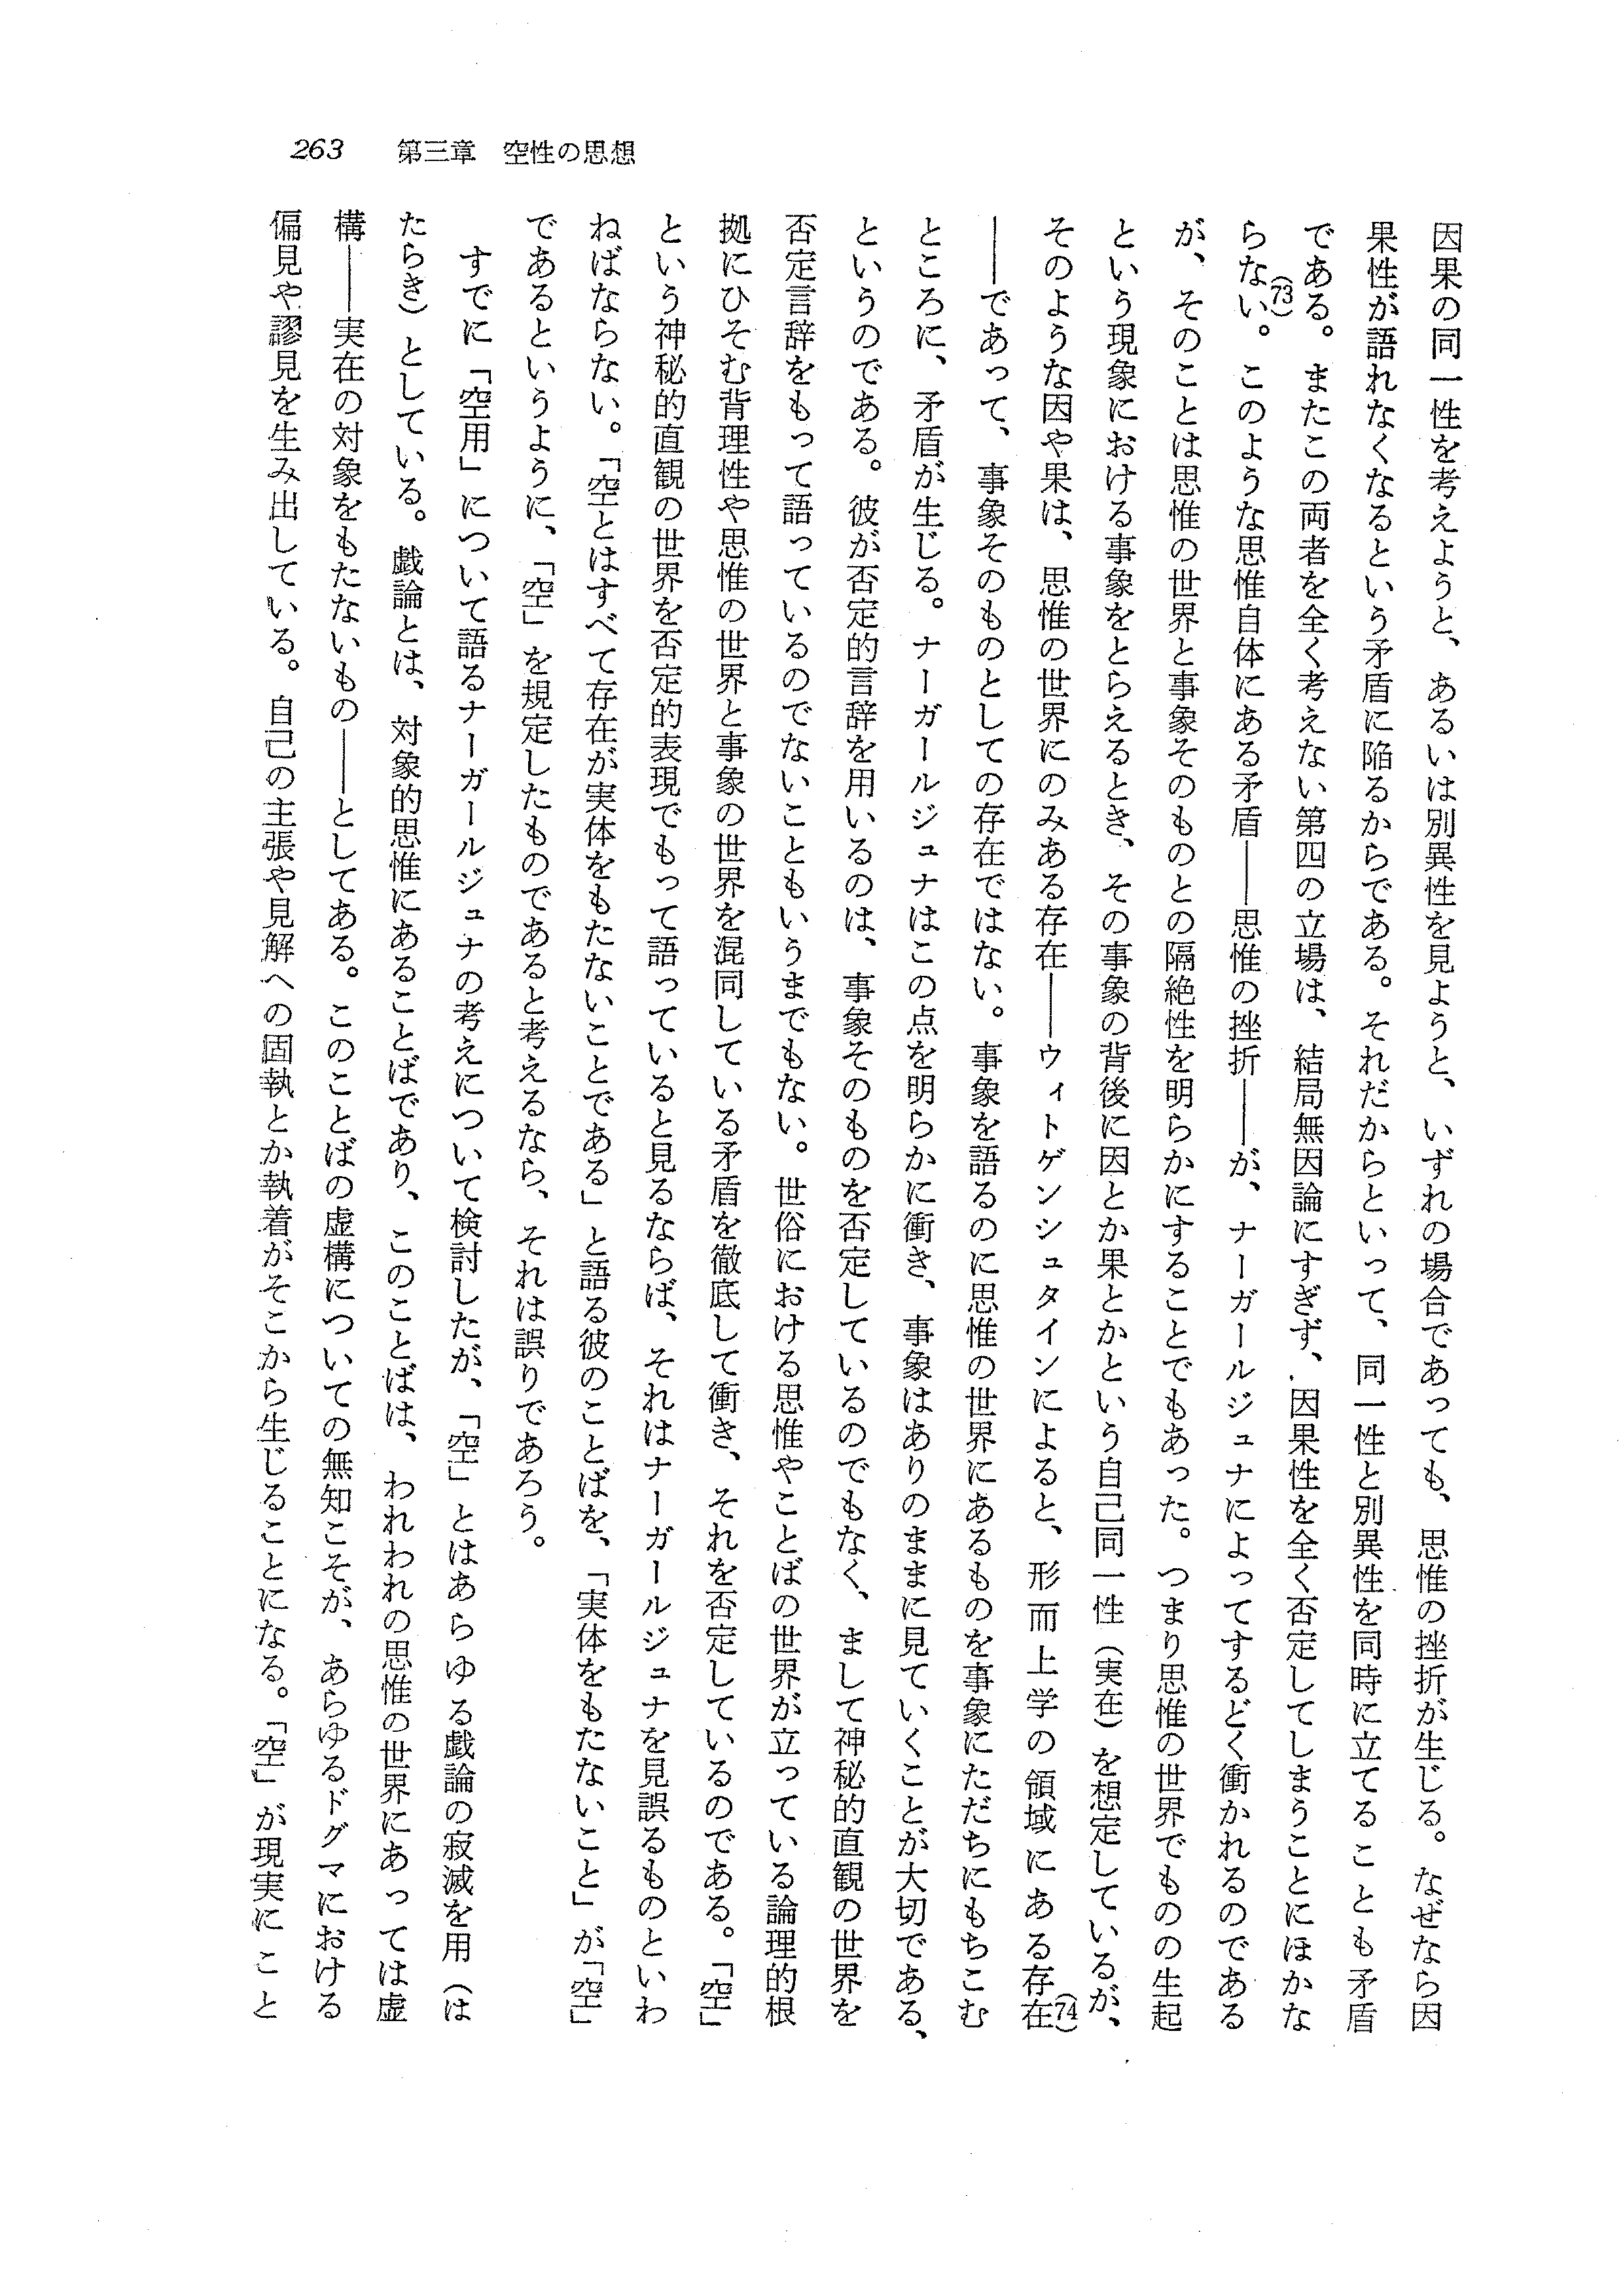 263　第三章　空性の思想
因果の同一性を考えようと、あるいは別異性を見ようと、いずれの場合であっても、思惟の挫折が生じる。なぜなら因
果性が語れなくなるという矛盾に陥るからである。それだからといって、同一性と別異性を同時に立てることも矛盾
である。またこの両者を全く考えない第四の立場は、結局無因論にすぎず、因果性を全く否定してしまうことにほかな
らない。(73)このような思惟自体にある矛盾――思惟の挫折――が、ナーガールジュナによってするどく衝かれるのである
が、そのことは思惟の世界と事象そのものとの隔絶性を明らかにすることでもあった。つまり思惟の世界でものの生起
という現象における事象をとらえるとき、その事象の背後に因とか果とかという自己同一性（実在）を想定しているが、
そのような因や果は、思惟の世界にのみある存在――ウィトゲンシュタインによると、形而上学の領域にある存在(74)
――であって、事象そのものとしての存在ではない。事象を語るのに思惟の世界にあるものを事象にただちにもちこむ
ところに、矛盾が生じる。ナーガールジュナはこの点を明らかに衝き、事象はありのままに見ていくことが大切である、
というのである。彼が否定的言辞を用いるのは、事象そのものを否定しているのでもなく、まして神秘的直観の世界を
否定言辞をもって語っているのでないこともいうまでもない。世俗における思惟やことばの世界が立っている論理的根
拠にひそむ背理性や思惟の世界と事象の世界を混同している矛盾を徹底して衝き、それを否定しているのである。「空」
という神秘的直観の世界を否定的表現でもって語っていると見るならば、それはナーガールジュナを見誤るものといわ
ねばならない。「空とはすべて存在が実体をもたないことである」と語る彼のことばを、「実体をもたないこと」が「空」
であるというように、「空」を規定したものであると考えるなら、それは誤りであろう。
すでに「空用」について語るナーガールジュナの考えについて検討したが、「空」とはあらゆる戯論の寂滅を用（は
たらき）としている。戯論とは、対象的思惟にあることばであり、このことばは、われわれの思惟の世界にあっては虚
構――実在の対象をもたないもの――としてある。このことばの虚構についての無知こそが、あらゆるドグマにおける
偏見や謬見を生み出している。自己の主張や見解への固執とか執着がそこから生じることになる。「空」が現実にこと